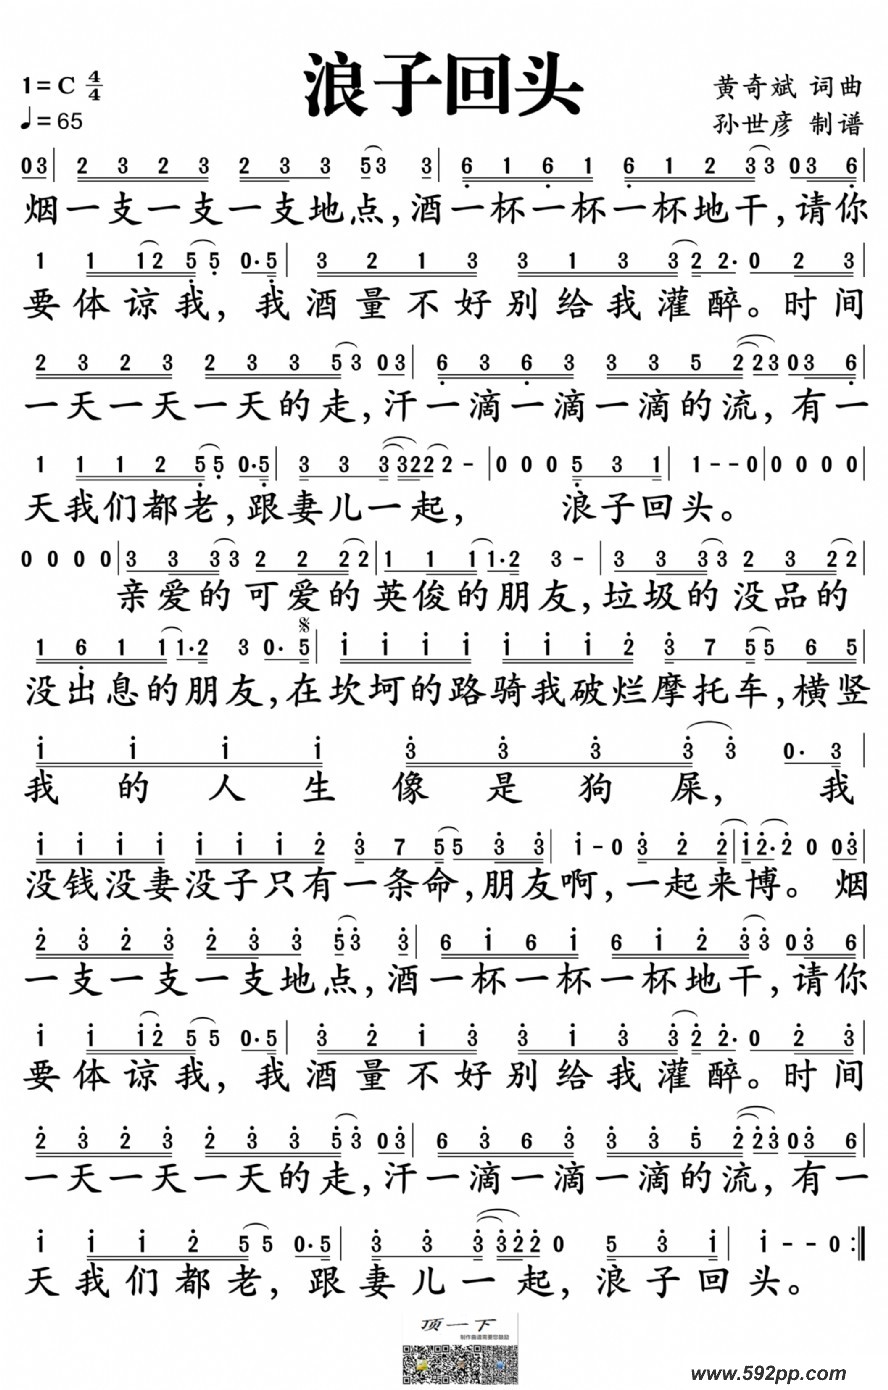 浪子回头
1=C 4/4
♩=65
黄奇斌 词曲
孙世彦 制谱
03| 2 3 2 3 2 3 3 53 3| 6 1 6 1 6 1 2 33 03 6|
烟一支一支一支地点,酒一杯一杯一杯地干,请你
1 1 12 5 5 0·5| 3 2 1 3 3 1 3 32 2·0 2 3|
要体谅我,我酒量不好别给我灌醉。时间
2 3 2 3 2 3 3 53 03| 6 3 6 3 3 3 5 223 03 6|
一天一天一天的走,汗一滴一滴一滴的流,有一
1 1 1 2 5 5 0·5| 3 3 3 322 2-|0 0 0 5 3 1| 1--0|0 0 0 0|
天我们都老,跟妻儿一起, 浪子回头。
0 0 0 0| 3 3 33 2 2 22| 1 1 11·2 3-| 3 3 33 2 3 22|
亲爱的可爱的英俊的朋友,垃圾的没品的
1 6 1 11·2 3 0·5| i i i i i i i 2 3 7 55 6 5|
没出息的朋友,在坎坷的路骑我破烂摩托车,横竖
i i i i 3 3 3 3 3 0·3|
我的人生像是狗屎, 我
i i i i i i i 2 3 7 55 3 3| i-0 3 2 2|i2·2 0 03|
没钱没妻没子只有一条命,朋友啊,一起来博。烟
2 3 2 3 2 3 3 53 3| 6 i 6 i 6 i 2 33 03 6|
一支一支一支地点,酒一杯一杯一杯地干,请你
i i i2 5 5 0·5| 3 2 i 3 3 i 3 32 2·0 2 3|
要体谅我,我酒量不好别给我灌醉。时间
2 3 2 3 2 3 3 53 03| 6 3 6 3 3 3 5 223 03 6|
一天一天一天的走,汗一滴一滴一滴的流,有一
i i i 2 5 5 0·5| 3 3 3 322 0 5 3 i| i--0:‖
天我们都老,跟妻儿一起,浪子回头。
顶一下
www.592pp.com